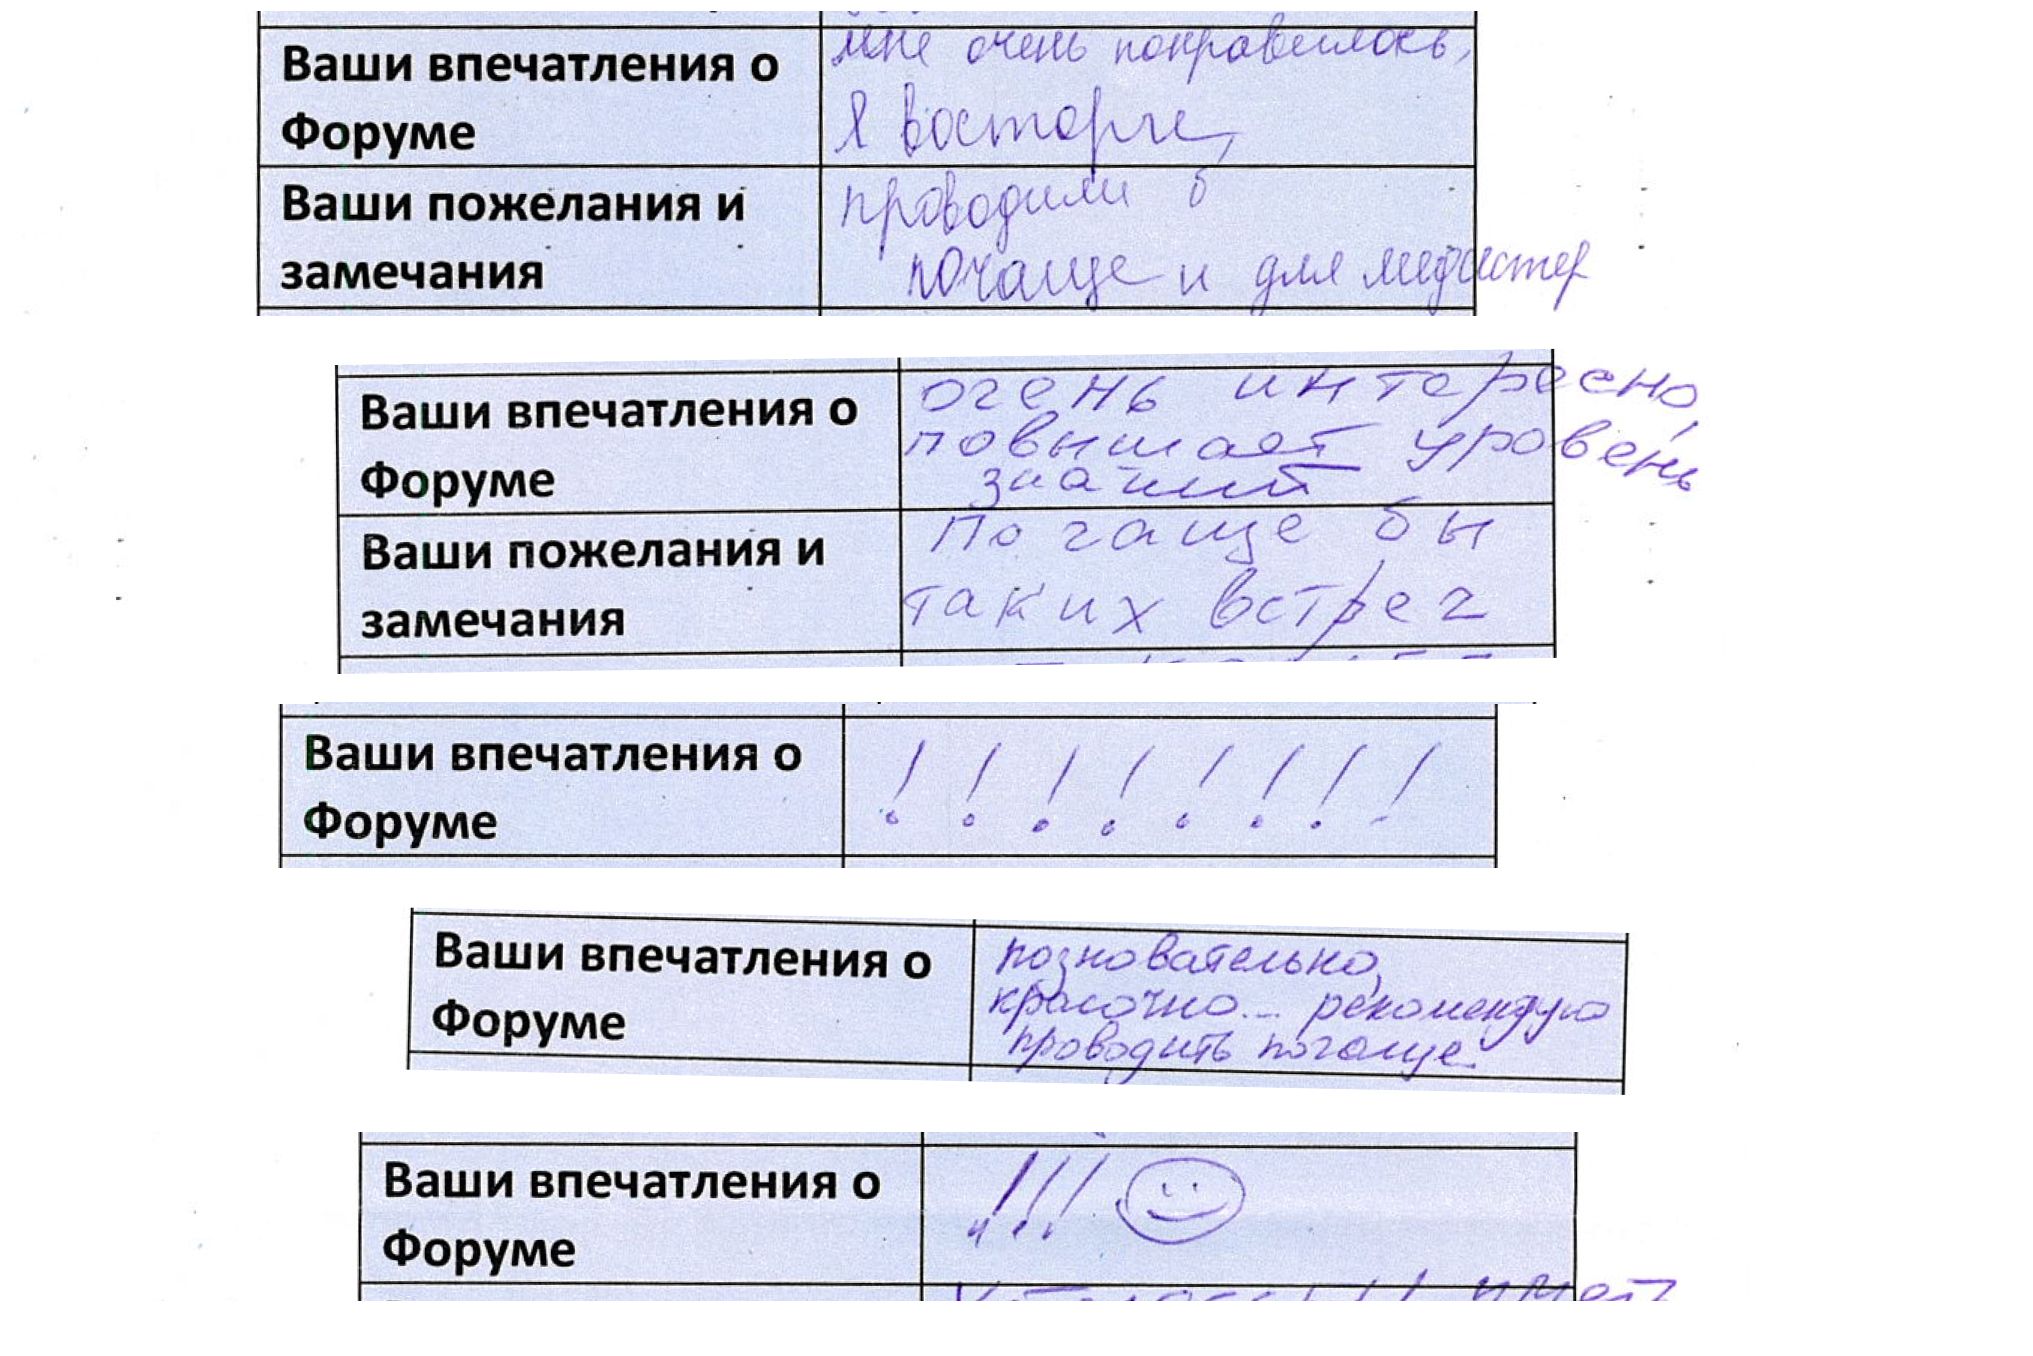 Ваши впечатления о
Форуме
мне очень понравилось,
Я восторге,
Ваши пожелания и
замечания
проводили б
почаще и для медсестер
Ваши впечатления о
Форуме
очень интересно,
повышает уровень
знаний
Ваши пожелания и
замечания
Почаще бы
таких встреч
Ваши впечатления о
Форуме
! ! ! ! ! ! ! !
Ваши впечатления о
Форуме
позновательно,
красочно... рекомендую
проводить почаще.
Ваши впечатления о
Форуме
!!!